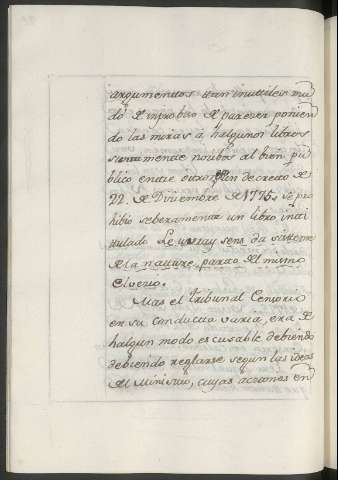 argumentos tan inutiles mu
dó de improbiro de parerer ponien
do las miras á halgunos libros
sumamente nocibos al bien pu
blico, entre otros en decreto de
22. de Diciemore de 1775, se pro
hibió seberamente un libro inti
tulado Le uray sens da sisteme
de la nature, parto del mismo
Mas el tribunal Censorio
en su conducta varia, era de
halgun modo es cusable debiendo
debiendo reglarse segun las ideas
del Ministrio, cuyas acciones en